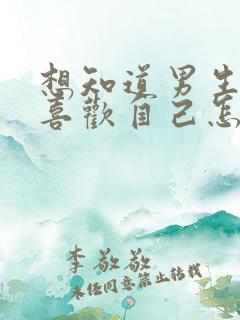 想知道男生
喜歡自己怎
李敬敬
未经同意禁止转载